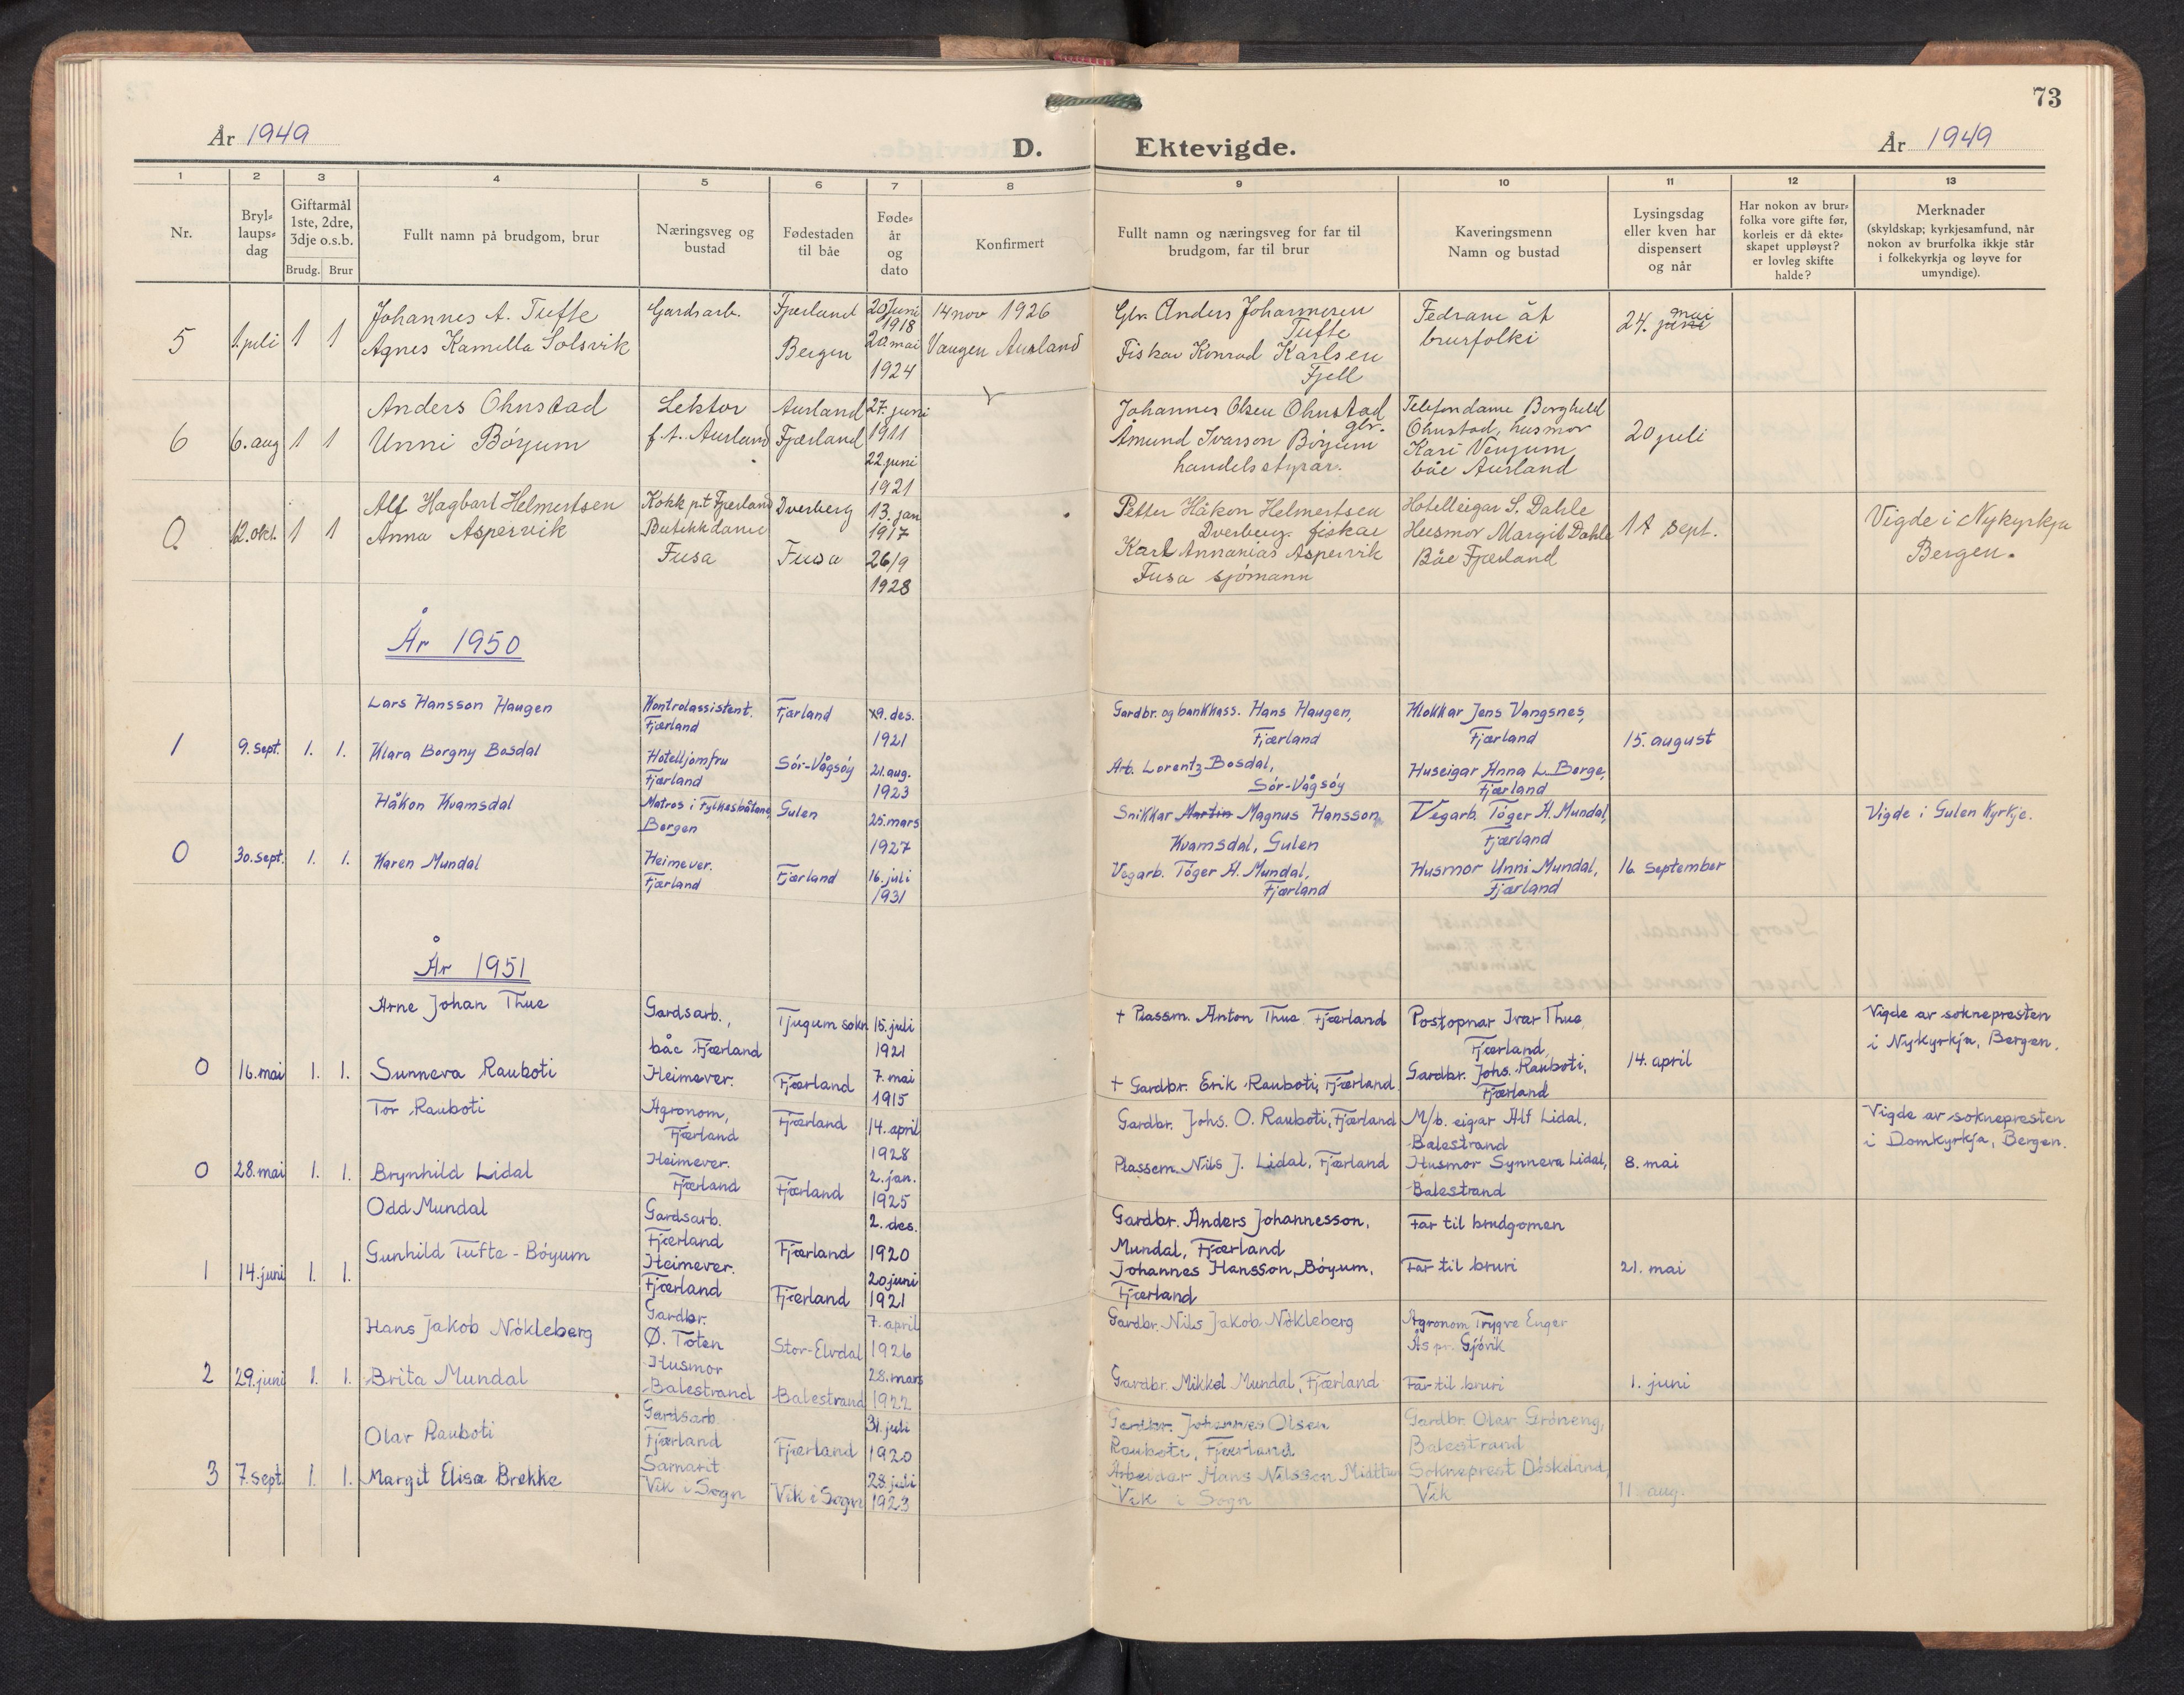 73
År 1949
D.
Ektevigde.
År 1949
1 2 3 4 5 6 7 8 9 10 11 12 13
Nr.
Bryl-
laups-
dag
Giftarmål
1ste, 2dre,
3dje o.s.b.
Brudg. Brur
Fullt namn på brudgom, brur
Næringsveg og
bustad
Fødestaden
til båe
Føde-
år
og
dato
Konfirmert
Fullt namn og næringsveg for far til
brudgom, far til brur
Kaveringsmenn
Namn og bustad
Lysingsdag
eller kven har
dispensert
og når
Har nokon av brur-
folka vore gifte før,
korleis er då ekte-
skapet uppløyst?
er lovleg skifte
halde?
Merknader
(skyldskap; kyrkjesamfund, når
nokon av brurfolka ikkje står
i folkekyrkja og løyve for
umyndige).
5 1. juli 1 1
Johannes A. Tufte
Agnes Kamilla Solsvik
Gardsarb.
Fjærland
Bergen
20 juni
1918
20 mai
1924
14 nov 1926
Vangen Aurland
Gbr. Anders Johannesen
Tufte
Fiskar Konrad Karlsen
Fjell
Fedrane åt
brurfolki
24. juni mai
6 6. aug 1 1
Anders Ohnstad
Unni Bøyum
Lektor
f.t. Aurland
Aurland
Fjærland
27. juni
1911
22 juni
1921
Johannes Olsen Ohnstad
gbr.
Åmund Ivarson Bøyum
handelsstyrar.
Telefondame Borghild
Ohnstad, husmor
Kari Venjum
båe Aurland
20 juli
0 12. okt. 1 1
Alf Hagbart Helmertsen
Anna Aspervik
Kokk p.t Fjærland
Butikkdame
Fusa
Dverberg
Fusa
13. jan
1917
26/9
1928
Petter Håkon Helmertsen
Dverberg. fiskar
Karl Annanias Aspervik
Fusa sjømann
Hotelleigar S. Dahle
Husmor Margit Dahle
Båe Fjærland
18 sept.
Vigde i Nykyrkja
Bergen.
År 1950
1 9. sept. 1. 1.
Lars Hansson Haugen
Klara Borgny Bosdal
Kontrolassistent.
Fjærland
Hotelljomfru
Fjærland
Fjærland
Sør-Vågsøy
9. des.
1921
21. aug.
1923
Gardbr. og bankkass. Hans Haugen,
Fjærland
Arb. Lorentz Bosdal,
Sør-Vågsøy
Klokkar Jens Vangsnes,
Fjærland
Huseigar Anna L. Berge,
Fjærland
15. august
0 30. sept. 1. 1.
Håkon Kvamsdal
Karen Mundal
Matros i Fylkesbåtane,
Bergen
Heimever.
Fjærland
Gulen
Fjærland
25. mars
1927
16. juli
1931
Snikkar Martin Magnus Hansson
Kvamsdal, Gulen
Vegarb. Tøger H. Mundal,
Fjærland
Vegarb. Tøger H. Mundal,
Fjærland
Husmor Unni Mundal,
Fjærland
16. september
Vigde i Gulen Kyrkje.
År 1951
0 16. mai 1. 1.
Arne Johan Thue
Sunneva Rauboti
Gardsarb.,
båe Fjærland
Heimever.
Tjugum sokn
Fjærland
15. juli
1921
7. mai
1915
+ Plassm. Anton Thue, Fjærland
+ Gardbr. Erik Rauboti, Fjærland
Postopnar Ivar Thue,
Fjærland
Gardbr. Johs. Rauboti,
Fjærland
14. april
Vigde av soknepresten
i Nykyrkja, Bergen.
0 28. mai 1. 1.
Tor Rauboti
Brynhild Lidal
Agronom,
Fjærland
Heimever.
Fjærland
Fjærland
Fjærland
14. april
1928
2. jan.
1925
Gardbr. Johs. O. Rauboti, Fjærland
Plassem. Nils J. Lidal, Fjærland
M/b. eigar Alf Lidal,
Balestrand
Husmor Synneva Lidal,
Balestrand
8. mai
Vigde av soknepresten
i Domkyrkja, Bergen.
1 14. juni 1. 1.
Odd Mundal
Gunhild Tufte-Bøyum
Gardsarb.
Fjærland
Heimever.
Fjærland
Fjærland
Fjærland
2. des.
1920
20 juni
1921
Gardbr. Anders Johannesson,
Mundal, Fjærland
Johannes Hansson, Bøyum,
Fjærland
Far til brudgomen
Far til bruri
21. mai
2 29. juni 1. 1.
Hans Jakob Nökleberg
Brita Mundal
Gardbr.
Ø. Toten
Husmor
Balestrand
Stor-Elvdal
Balestrand
7. april
1926
28. mars
1922
Gardbr. Nils Jakob Nökleberg
Gardbr. Mikkel Mundal, Fjærland
Agronom Trygve Enger
Ås pr. Gjøvik
Far til bruri
1. juni
3 7. sept. 1. 1.
Olav Rauboti
Margit Elisa Brekke
Gardsarb.
Fjærland
Samarit
Vik i Sogn
Fjærland
Vik i Sogn
31. juli
1920
28. juli
1923
Gardbr. Johannes Olsen
Rauboti, Fjærland
Arbeidar Hans Nilsson Midttun
Vik i Sogn
Gardbr. Olav Grøneng,
Balestrand
Sokneprest Döskeland,
Vik
11. aug.